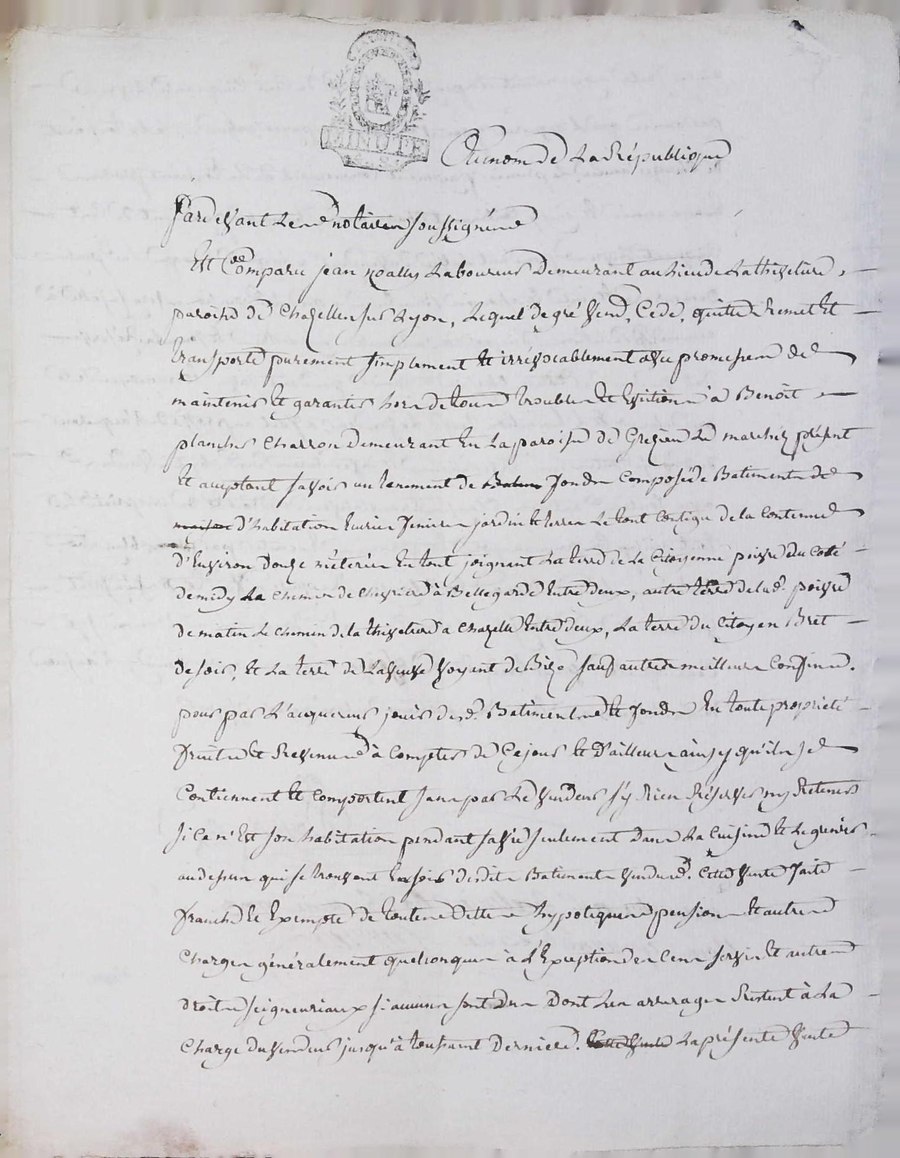 MINUTE
Au nom de La République
Pardevant Les nores notaires soussignés
Est Comparu jean Laboureur Demeurant au lieu de Lathiveture,
paroisse de Chazelles sur Lyon, Lequel de gré Vend, Cede, quitte Remet Et
transporte purement simplement Et irrévocablement avec promesse de
maintenir Et garantir hors de tous troubles Et Evictions à Benoit
planchet Charron Demeurant En La paroisse de Grezieu Le marché, présent
Et acceptant savoir un tenement de fonds Composé de Batiments de
d'habitation Ecurie feniere jardin Et terre Le tout Contigu de la Contenue
d'Environ douze En tout joignant La terre de La Citoyenne poivre du Coté
de midy La Chemin de Chevrieres à Bellegarde Entre deux, autre terre de lad. poivre
de matin Le chemin de la thiveture a Chazelle Entre deux, La terre du Citoyen Bret
de soir, Et La terre de La veuve Voyant de Bize sauf autres meilleurs Confins.
pour par L'acquereur jouir desd. Batiments Et fonds En toute proprieté
fruits Et Revenus à Compter de Ce jour Et D'ailleurs ainsy qu'ils se
Contiennent Et Comportent sans par Le Vendeur s'y Rien Réserver ny Retenir
si Ce n'Est son habitation pendant sa vie seulement dans La Cuisine Et Le grenier
au dessus qui se trouvent En soir desdits Batiments Vendus. Cette Vente faite
franche Et Exempte de toutes Dettes hypoteques pension Et autres
Charges généralement quelconques à L'Exception des Cens servis Et autres
droits seigneuriaux si aucuns sont Dus Dont Les arrerages Restent à La
Charge du Vendeur jusqu'à toussaint Derniere. Cette Vente La présente Vente